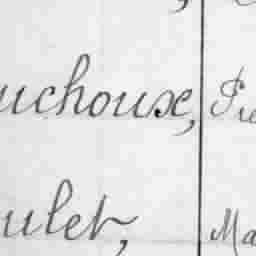 uchoux, Pie
ulet, Ma